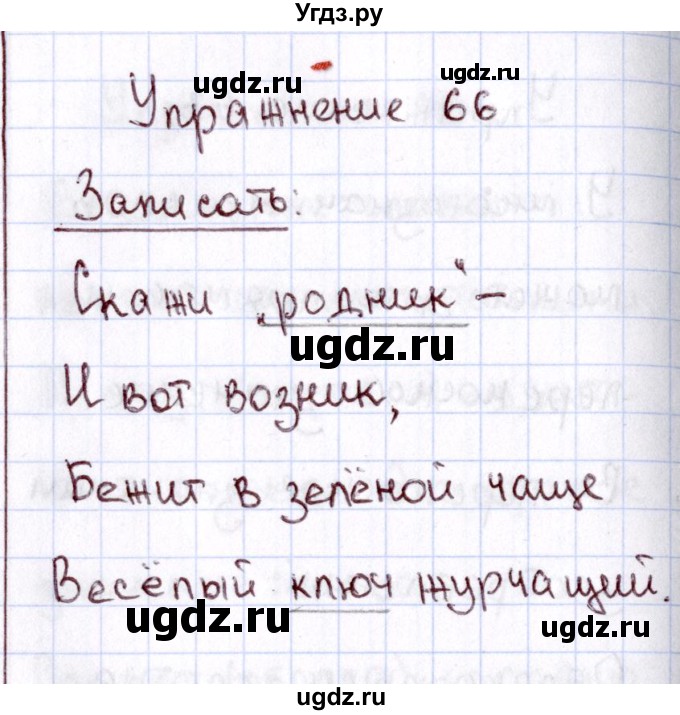 Угдз.ру
ugdz.ru ugdz.ru
Упражнение 66
Записать:
Скажи „родник“ –
ugdz.ru
И вот возник,
Бежит в зелёной чаще
Весёлый ключ журчащий.
ugdz.ru ugdz.ru
ugdz.ru